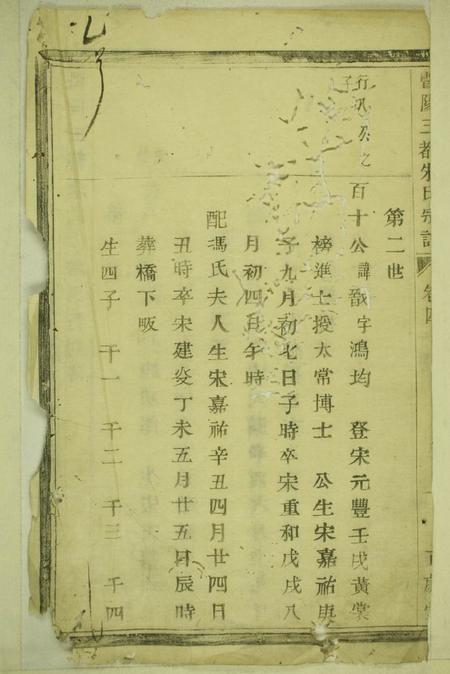 三都朱氏宗譜 卷四
第二世
行 公之子
百十公諱 字鴻均 登宋元豐壬戌黃裳
榜進士授太常博士 公生宋嘉祐庚
子九月初七日子時卒宋重和戊戌八
月初四日午時
配馮氏夫人生宋嘉祐辛丑四月廿四日
丑時卒宋建炎丁未五月廿五日辰時
葬橋下畈
生四子 千一 千二 千三 千四